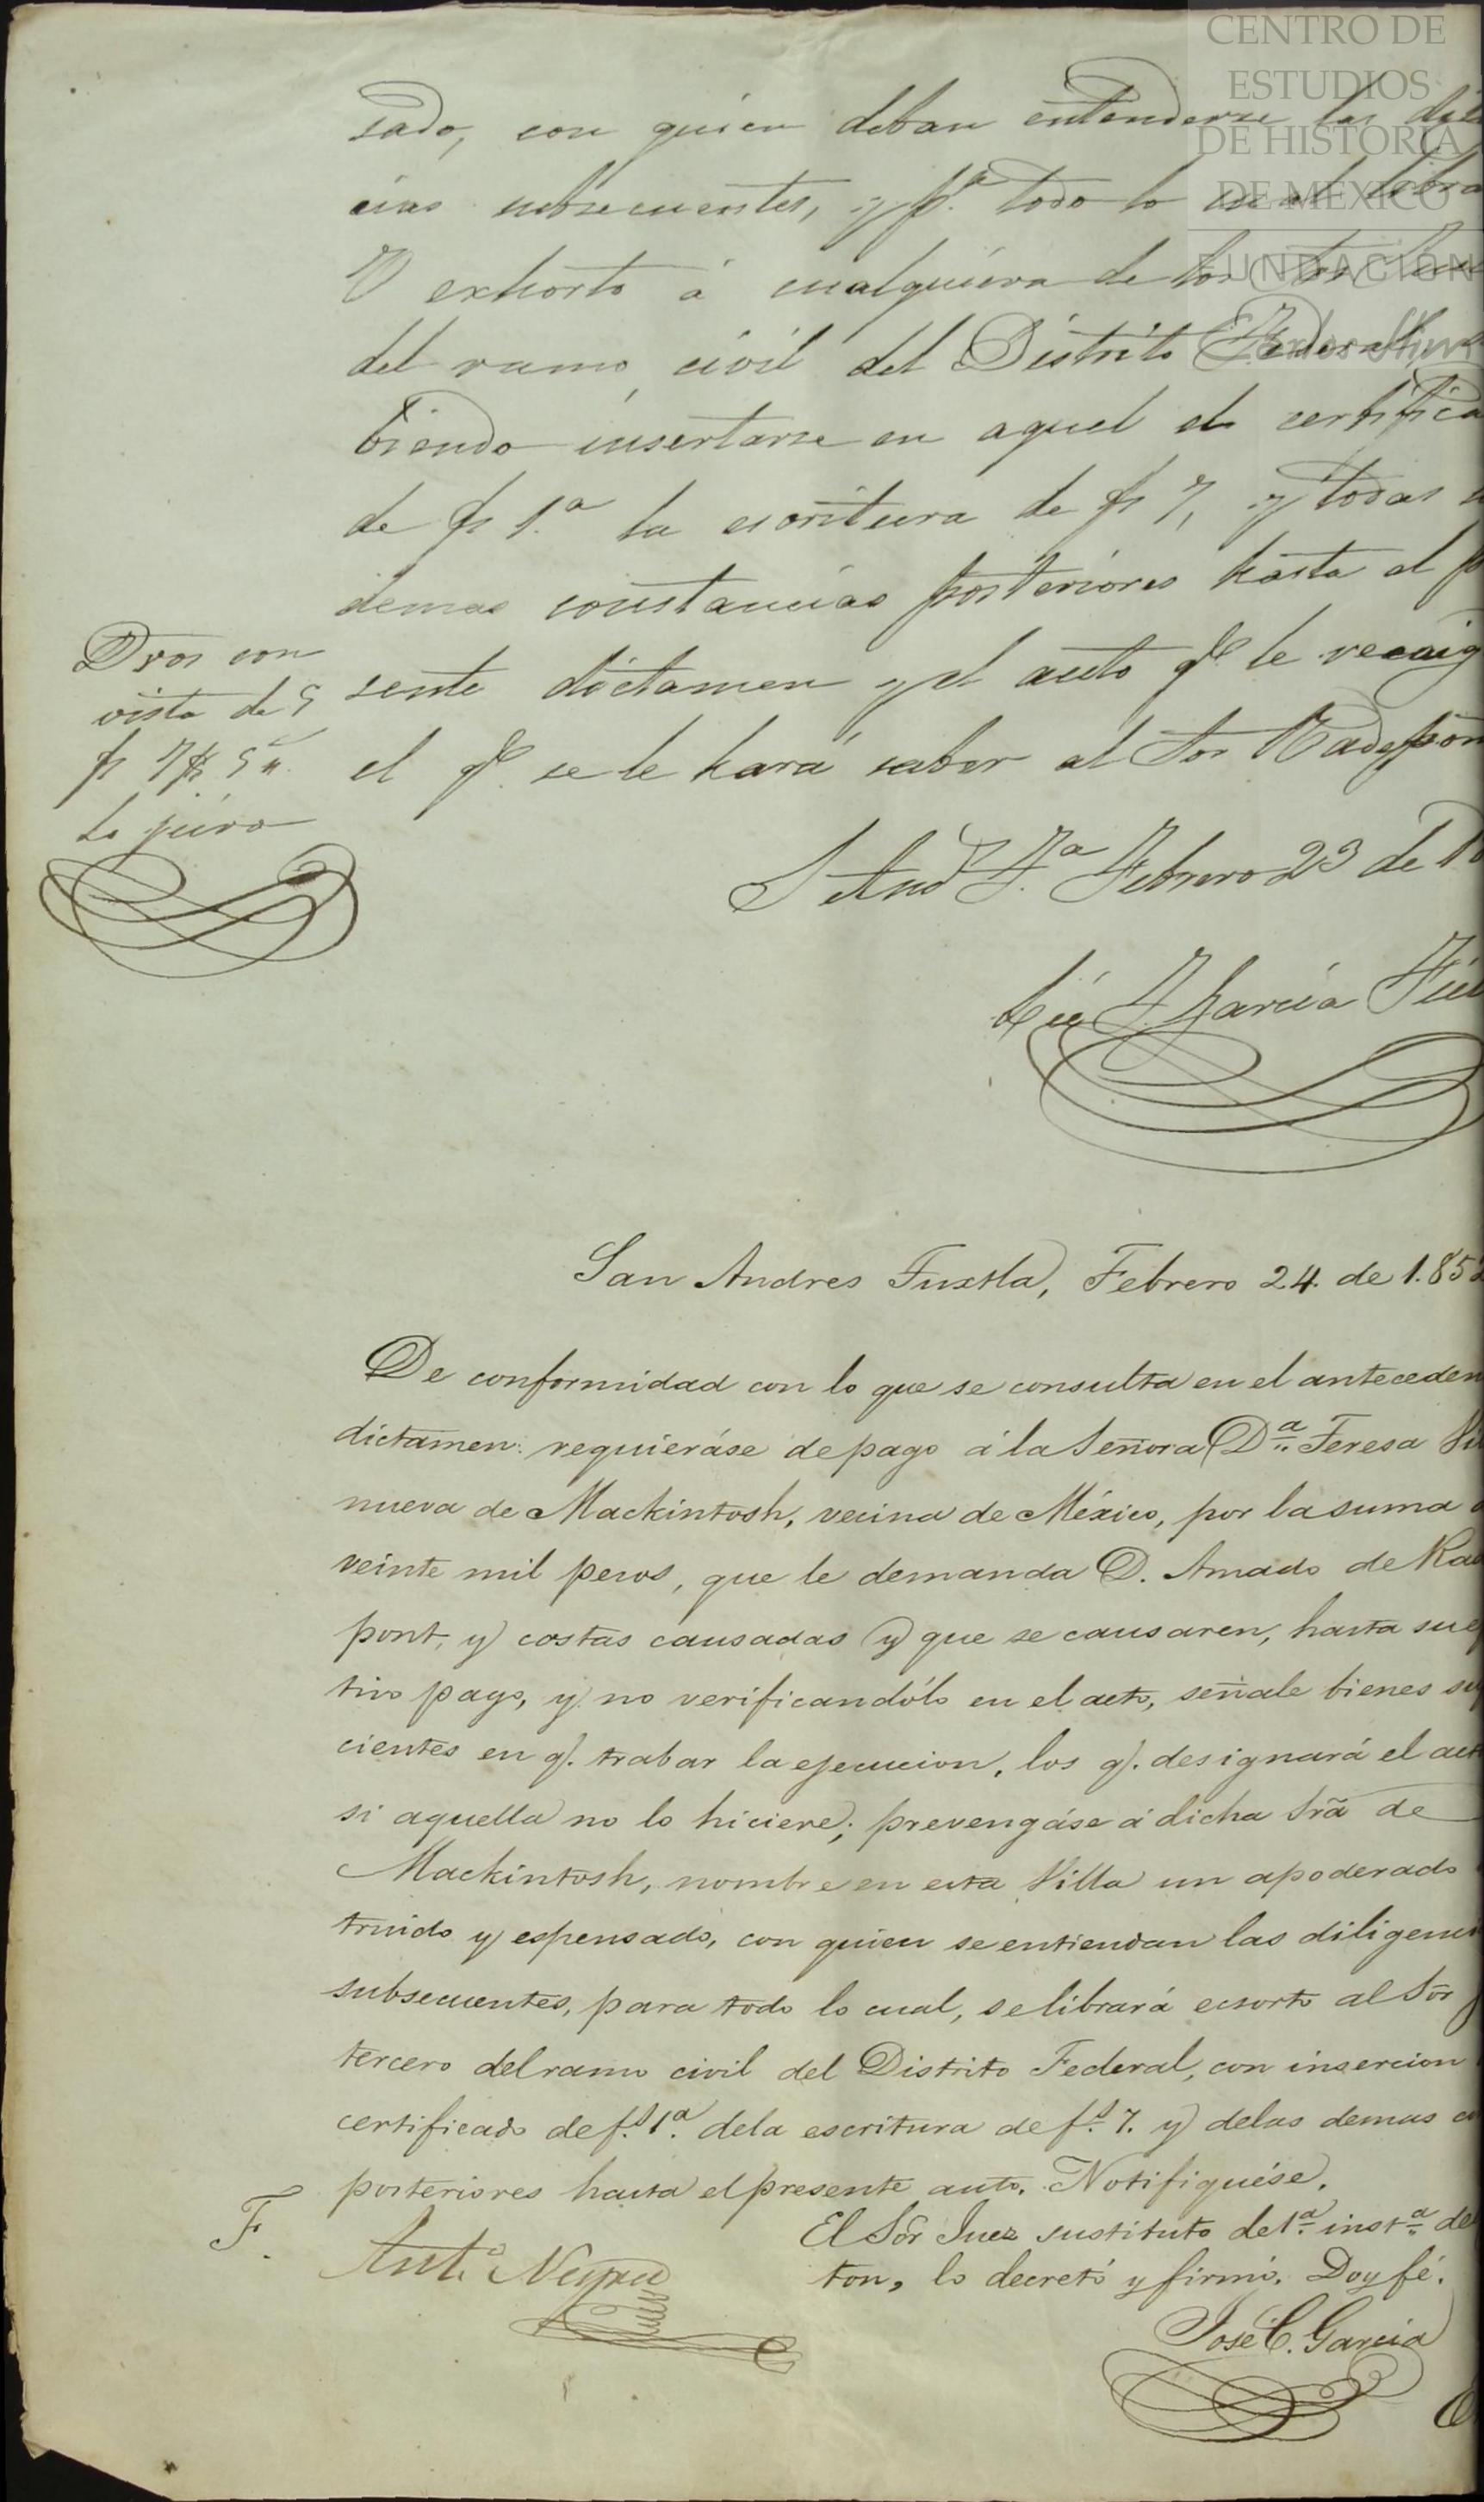 CENTRO DE
ESTUDIOS
DE HISTORIA
DE MÉXICO
FUNDACIÓN
Carlos Slim
sado, con quien deban entenderse las dili
cias subsecuentes, y pª. todo lo cual libra
V exhorto á cualquiera de los Sres
del ramo civil del Distrito Federal,
biendo insertarse en aquel el certifica
de fs 1.ª la escritura de fs 7, y todas
demas constancias posteriores hasta el p
sente dictamen y el auto qe. le recaig
el qe. se le hará saber al Sor Radepon
Dros con
vista de
fs
Lo juro
S And T.ª Febrero 23 de
Lic J. Garcia
San Andres Tuxtla, Febrero 24. de 1.85
De conformidad con lo que se consulta en el anteceden
dictamen: requieráse de pago á la Señora Dª. Teresa Vi
nueva de Mackintosh, vecina de México, por la suma
veinte mil pesos, que le demanda D. Amado de Ra
pont, y costas causadas y que se causaren, hasta su ef
tivo pago, y no verificandólo en el acto, señale bienes su
cientes en q. trabar la ejecucion, los q. designará el act
si aquella no lo hiciere; prevengáse á dicha Srã de
Mackintosh, nombre en esta Villa un apoderado
truido y espensado, con quien se entiendan las diligenc
subsecuentes, para todo lo cual, se librará ecsorto al Sõr
tercero del ramo civil del Distrito Federal, con insercion
certificado de fs. 1ª. de la escritura de fs. 7. y de las demas
posteriores hasta el presente auto. Notifiquése.
El Sõr Juez sustituto de 1ª. instª. de
ton, lo decretó y firmó. Doy fé.
F.
Antº.
José C. Garcia